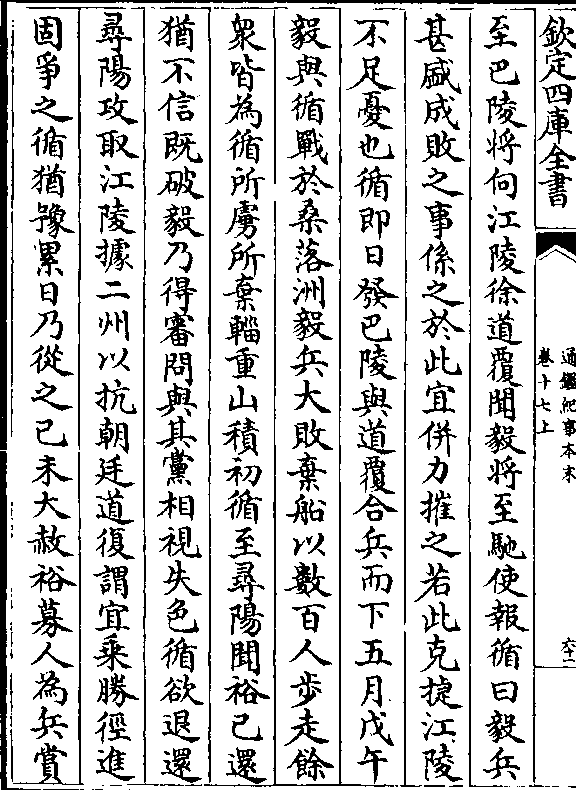 欽定四庫全書
通鑑紀事本末
卷十七上
六十二
至巴陵將向江陵徐道覆聞毅將至馳使報循曰毅兵
甚盛成敗之事係之於此宜併力摧之若此克捷江陵
不足憂也循即日發巴陵與道覆合兵而下五月戊午
毅與循戰於桑落洲毅兵大敗棄船以數百人步走餘
衆皆為循所虜所棄輜重山積初循至尋陽聞裕已還
猶不信既破毅乃得審問與其黨相視失色循欲退還
尋陽攻取江陵據二州以抗朝廷道復謂宜乘勝徑進
固爭之循猶豫累日乃從之己未大赦裕募人為兵賞